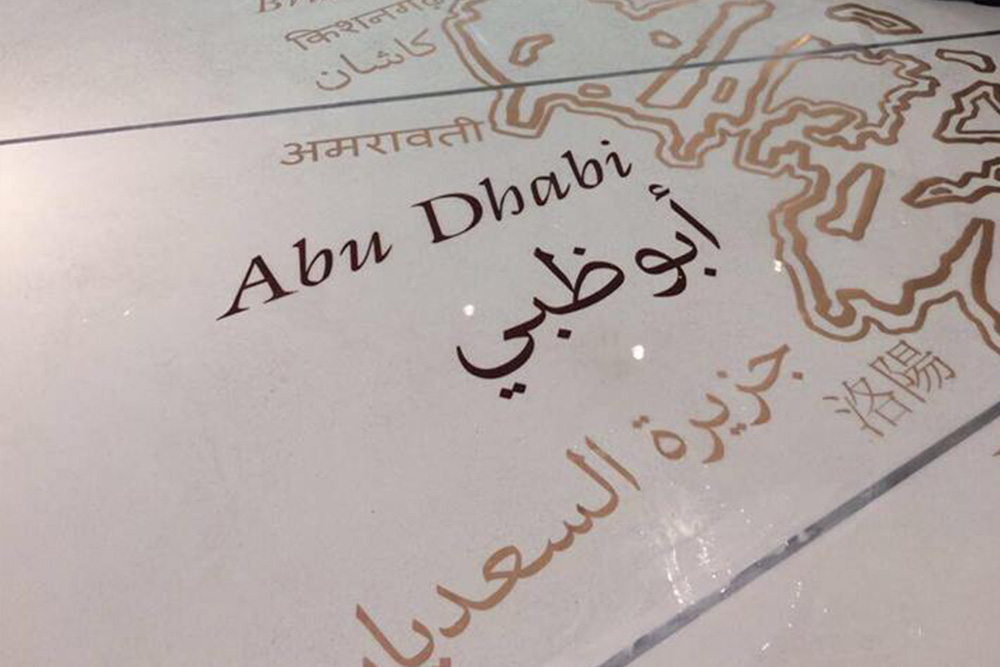 किशनगढ़
کاشان
अमरावती
Abu Dhabi
أبو ظبي
جزيرة السعديات
洛陽